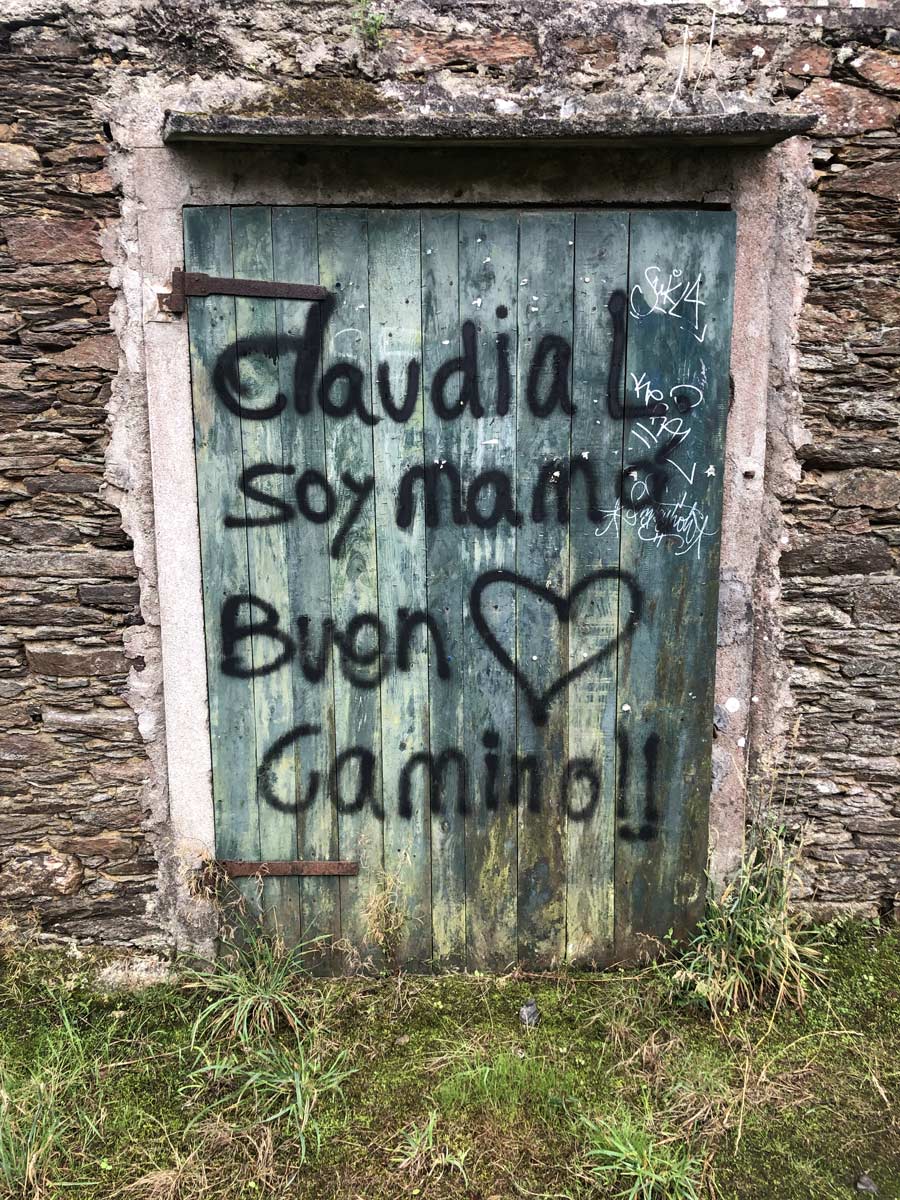 Claudia L.
soy mamá
Buen
Camino!!